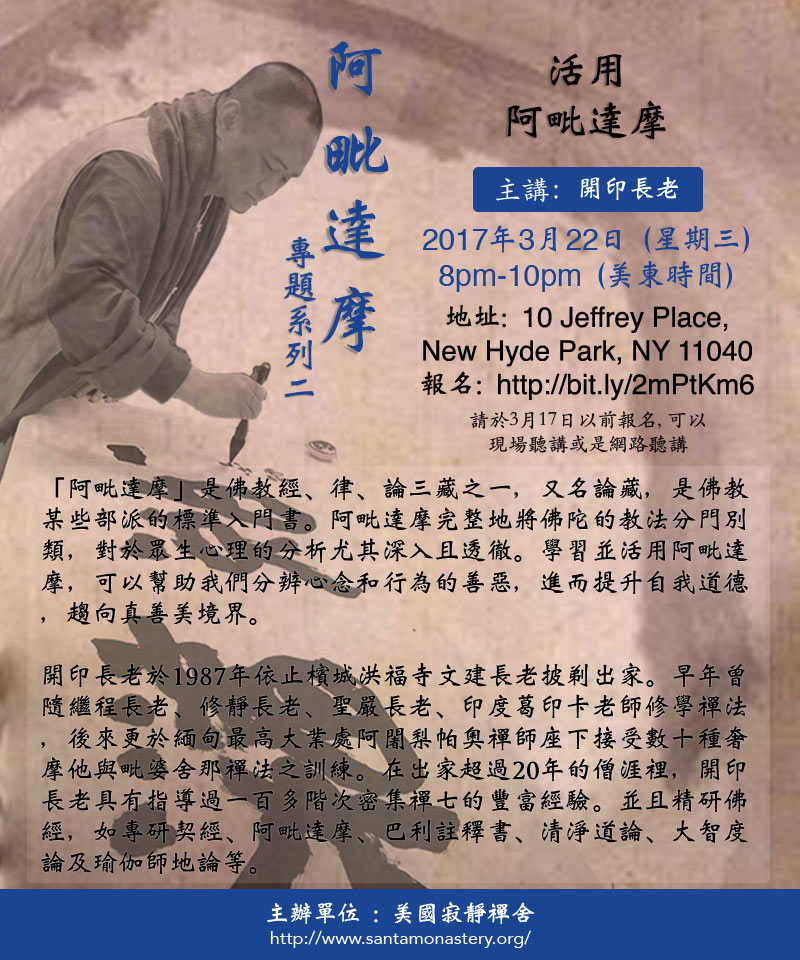 阿毗達摩
專題系列二
活用
阿毗達摩
主講：開印長老
2017年3月22日（星期三）
8pm-10pm（美東時間）
地址：10 Jeffrey Place,
New Hyde Park, NY 11040
報名：http://bit.ly/2mPtKm6
請於3月17日以前報名，可以
現場聽講或是網路聽講
「阿毗達摩」是佛教經、律、論三藏之一，又名論藏，是佛教
某些部派的標準入門書。阿毗達摩完整地將佛陀的教法分門別
類，對於眾生心理的分析尤其深入且透徹。學習並活用阿毗達
摩，可以幫助我們分辨心念和行為的善惡，進而提升自我道德
，趨向真善美境界。
開印長老於1987年依止檳城洪福寺文建長老披剃出家。早年曾
隨繼程長老、修靜長老、聖嚴長老、印度葛印卡老師修學禪法
，後來更於緬甸最高大業處阿闍梨帕奧禪師座下接受數十種奢
摩他與毗婆舍那禪法之訓練。在出家超過20年的僧涯裡，開印
長老具有指導過一百多階次密集禪七的豐富經驗。並且精研佛
經，如專研契經、阿毗達摩、巴利註釋書、清淨道論、大智度
論及瑜伽師地論等。
主辦單位 ：美國寂靜禪舍
http://www.santamonastery.org/